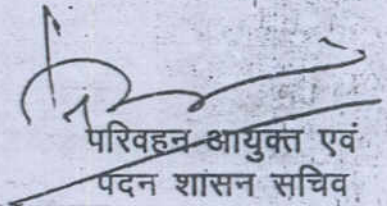 परिवहन आयुक्त एवं
पदन शासन सचिव